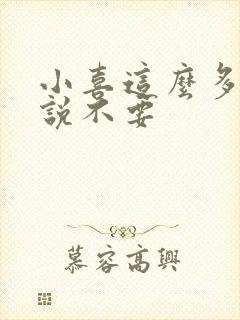 小喜這麼多
說不要
慕容高興